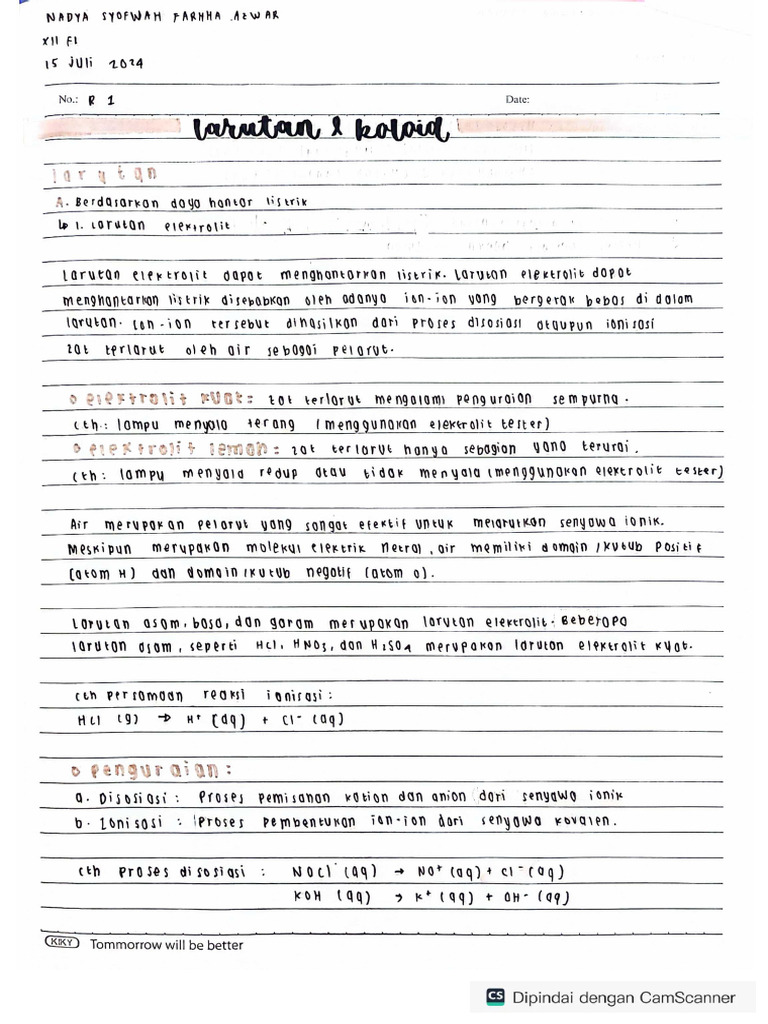 NADYA SYOFWAH FARHHA AZWAR
XII F1
15 JULI 2024
No.: R 1
Date:
Larutan & koloid
larutan
A. Berdasarkan daya hantar listrik
↳ 1. Larutan elektrolit
Larutan elektrolit dapat menghantarkan listrik. Larutan elektrolit dapat
menghantarkan listrik disebabkan oleh adanya ion-ion yang bergerak bebas di dalam
larutan. Ion-ion tersebut dihasilkan dari proses disosiasi ataupun ionisasi
zat terlarut oleh air sebagai pelarut.
elektrolit kuat: zat terlarut mengalami penguraian sempurna.
Cth.: lampu menyala terang (menggunakan elektrolit tester)
elektrolit lemah: zat terlarut hanya sebagian yang terurai.
Cth: lampu menyala redup atau tidak menyala (menggunakan elektrolit tester)
Air merupakan pelarut yang sangat efektif untuk melarutkan senyawa ionik.
Meskipun merupakan molekul elektrik netral, air memiliki domain/kutub positif
(atom H) dan domain/kutub negatif (atom O).
Larutan asam, basa, dan garam merupakan larutan elektrolit. Beberapa
larutan asam, seperti HCl, HNO₃, dan H₂SO₄ merupakan larutan elektrolit kuat.
Cth persamaan reaksi ionisasi:
HCl (g) → H⁺ (aq) + Cl⁻ (aq)
penguraian:
a. Disosiasi: Proses pemisahan kation dan anion dari senyawa ionik
b. Ionisasi: Proses pembentukan ion-ion dari senyawa kovalen.
Cth proses disosiasi: NaCl (aq) → Na⁺ (aq) + Cl⁻ (aq)
KOH (aq) → K⁺ (aq) + OH⁻ (aq)
KIKY Tommorrow will be better
CS Dipindai dengan CamScanner